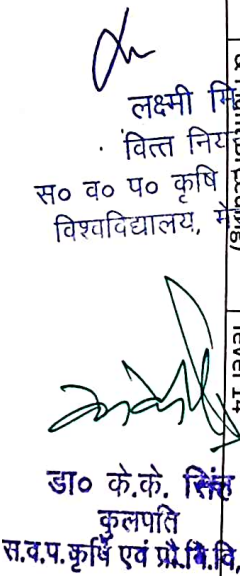 लक्ष्मी
वित्त
स० व० प० कृषि
विश्वविद्यालय,
level 14
डा० के.के. सिंह
कुलपति
स.व.प.कृषि एवं प्रौ.वि.वि.